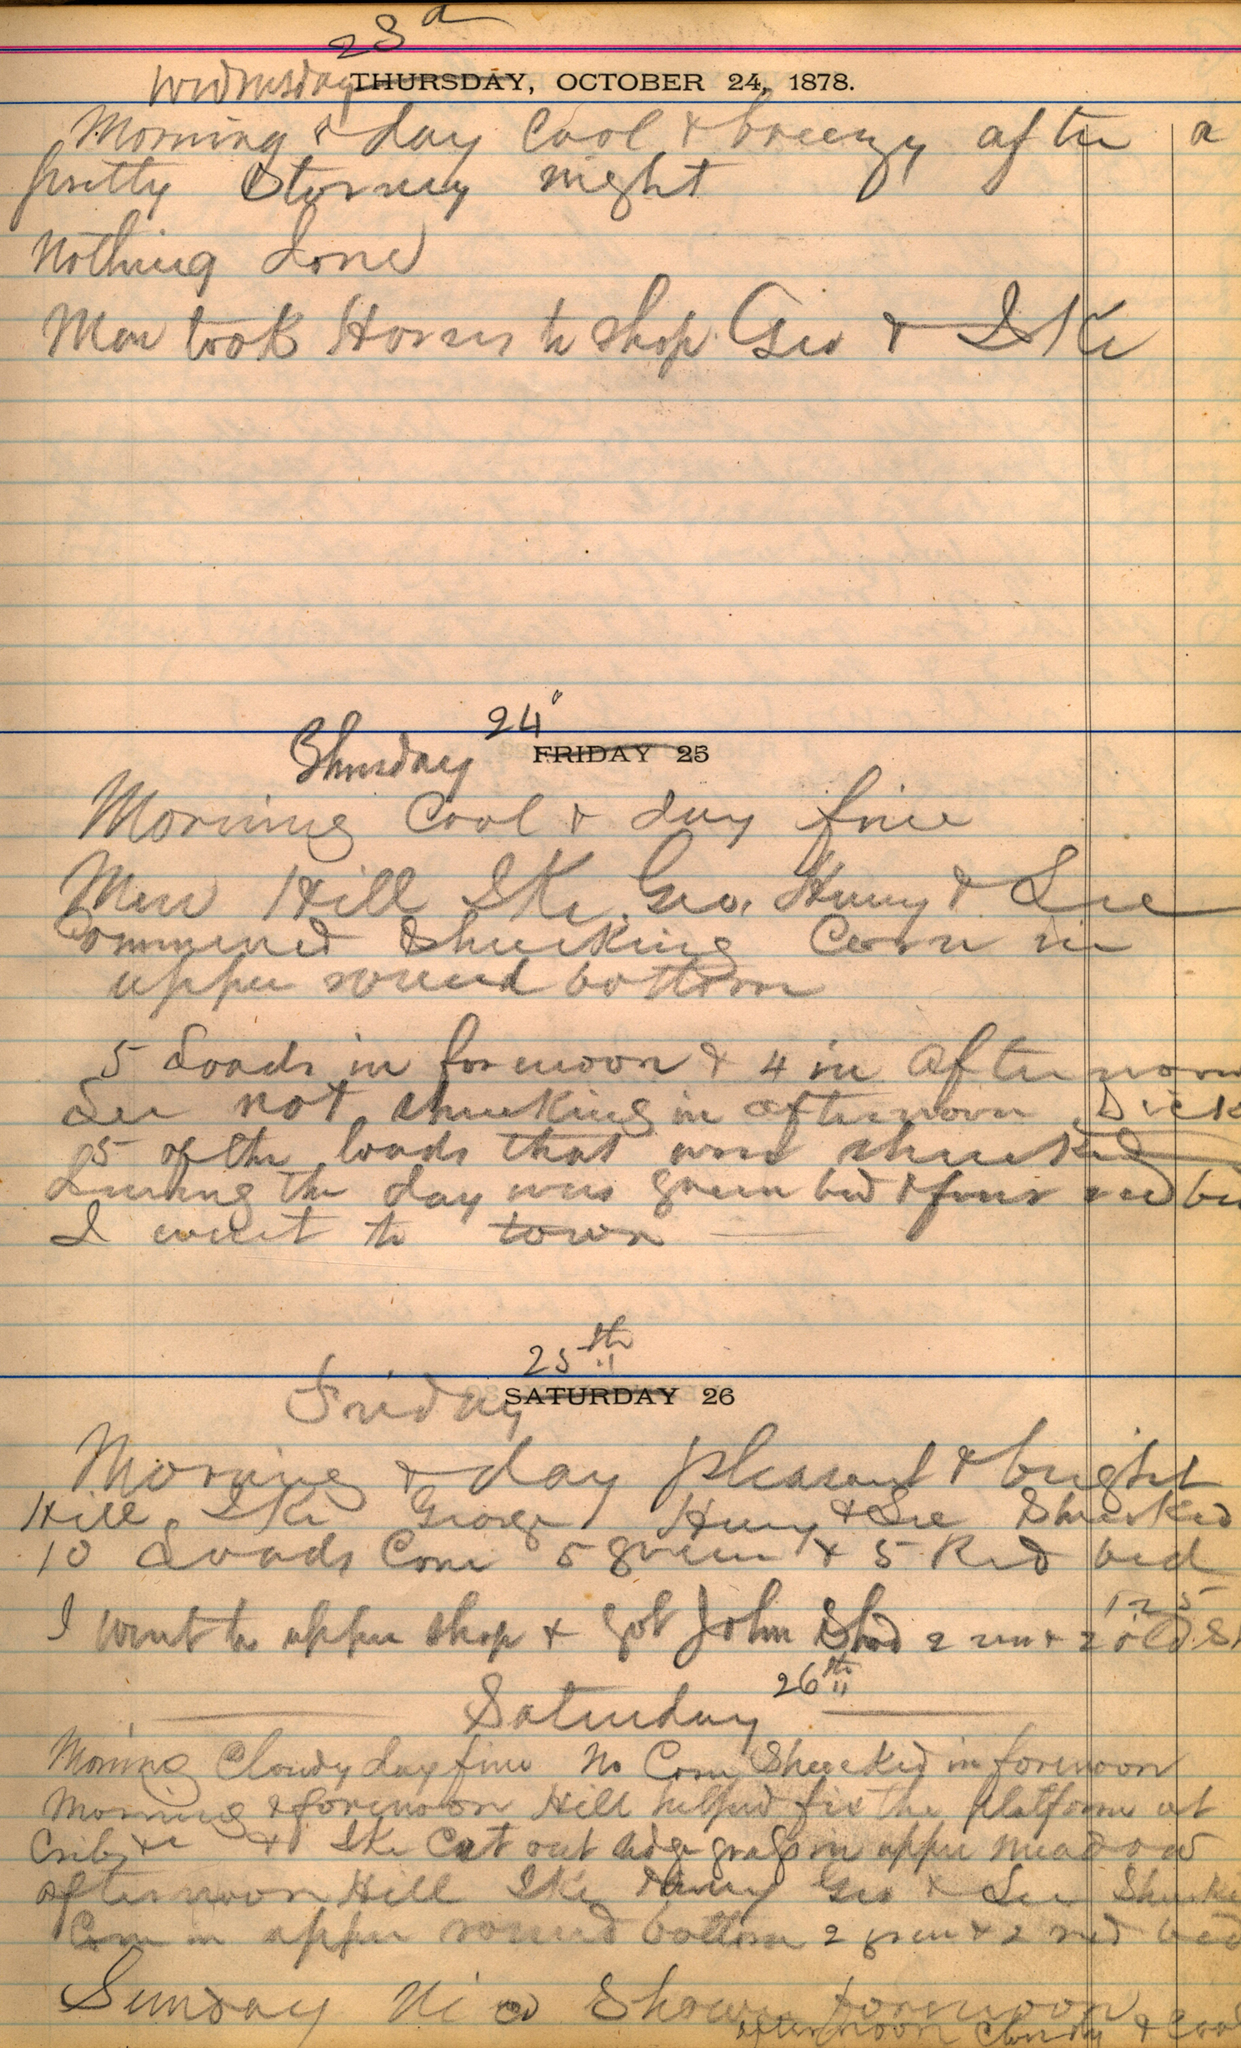 23d
Wednesday THURSDAY, OCTOBER 24, 1878.
Morning & day Cool & breezy after a
pretty stormy night
Nothing done
Men took Horses to shop Geo & Ike
Thursday 24" FRIDAY 25
Morning Cool & day fine
Men Hill Ike, Geo, Henry & Lee
Commenced Shucking Corn in
upper round bottom
5 Loads in forenoon & 4 in afternoon
Lee not shucking in afternoon Dick
5 of the loads that was shucked
during the day was green bed & four red bed
I went to town
25th
Friday SATURDAY 26
Morning & day pleasant & bright
Hill Ike George Henry & Lee Shucked
10 Loads Corn 5 green & 5 Red bed
125
I went to upper shop & got John Shod 2 new & 2 old
Saturday 26th
Morning Cloudy day fine No Corn Shucked in forenoon
Morning & forenoon Hill helped fix the platform at
Crib & Ike Cut out edge grass in upper meadow
afternoon Hill Ike Henry Geo & Lee Shucked
Corn in upper round bottom 2 green & 2 red bed
Sunday Nice Shower forenoon
afternoon Cloudy & Cool